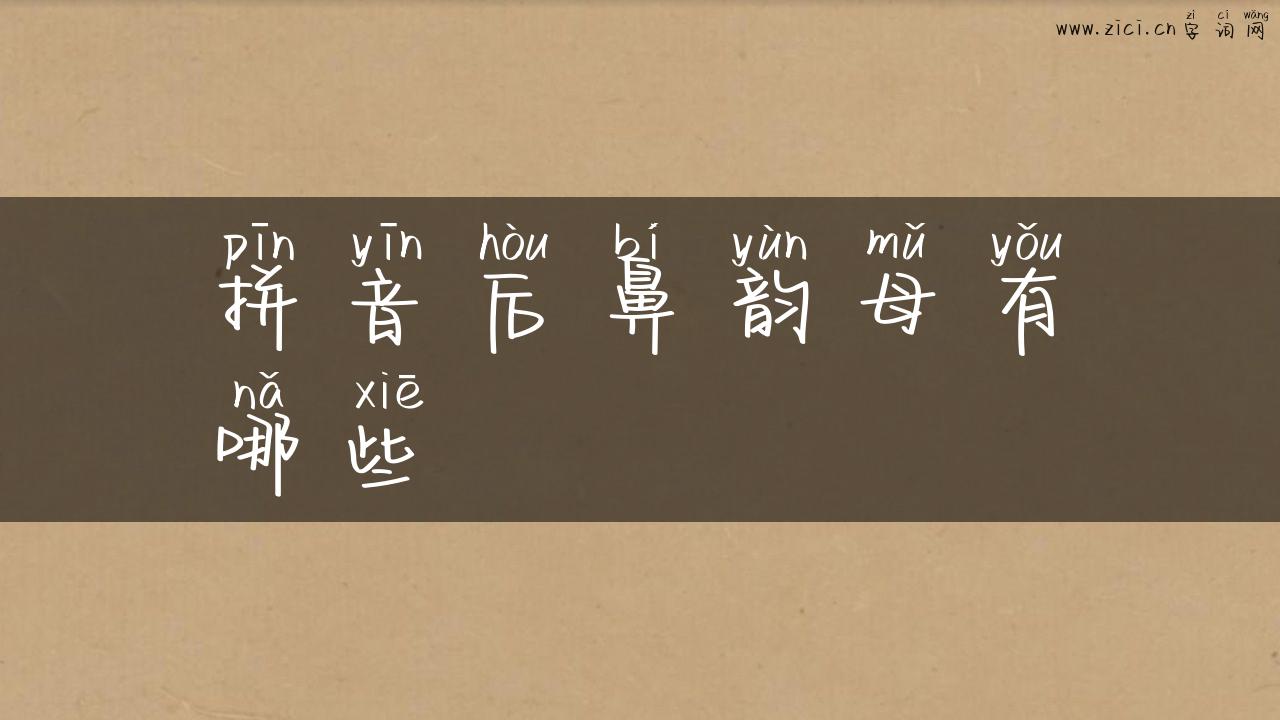 zì cí wǎng
www.zici.cn 字 词 网
pīn yīn hòu bí yùn mǔ yǒu
拼 音 后 鼻 韵 母 有
nǎ xiē
哪 些